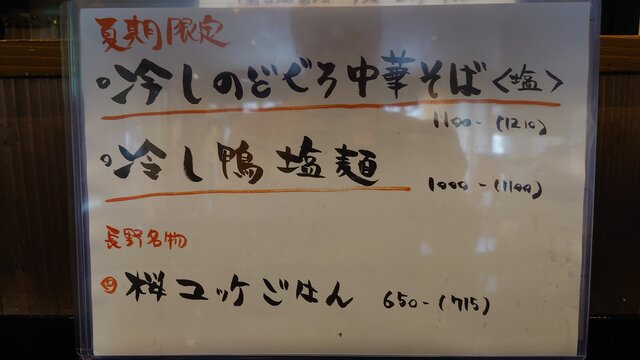 夏期限定
冷しのどぐろ中華そば〈塩〉
1100-(1210)
冷し鴨塩麺
1000-(1100)
長野名物
桜ユッケごはん 650-(715)